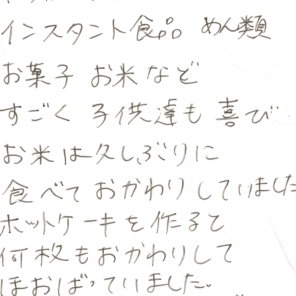 インスタント食品 めん類
お菓子 お米など
すごく 子供達も 喜び
お米は久しぶりに
食べて おかわり していました
ホットケーキを 作ると
何枚も おかわりして
ほおばっていました。